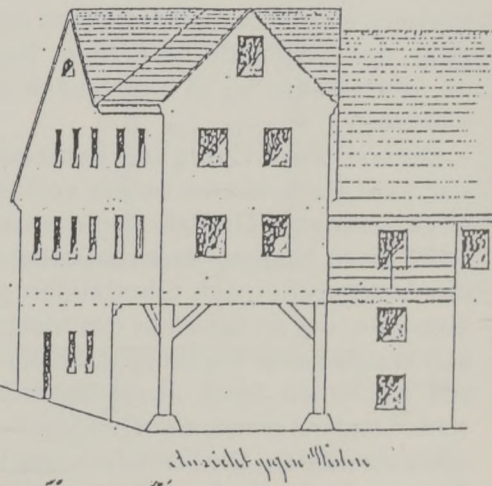 Ansicht gegen Westen